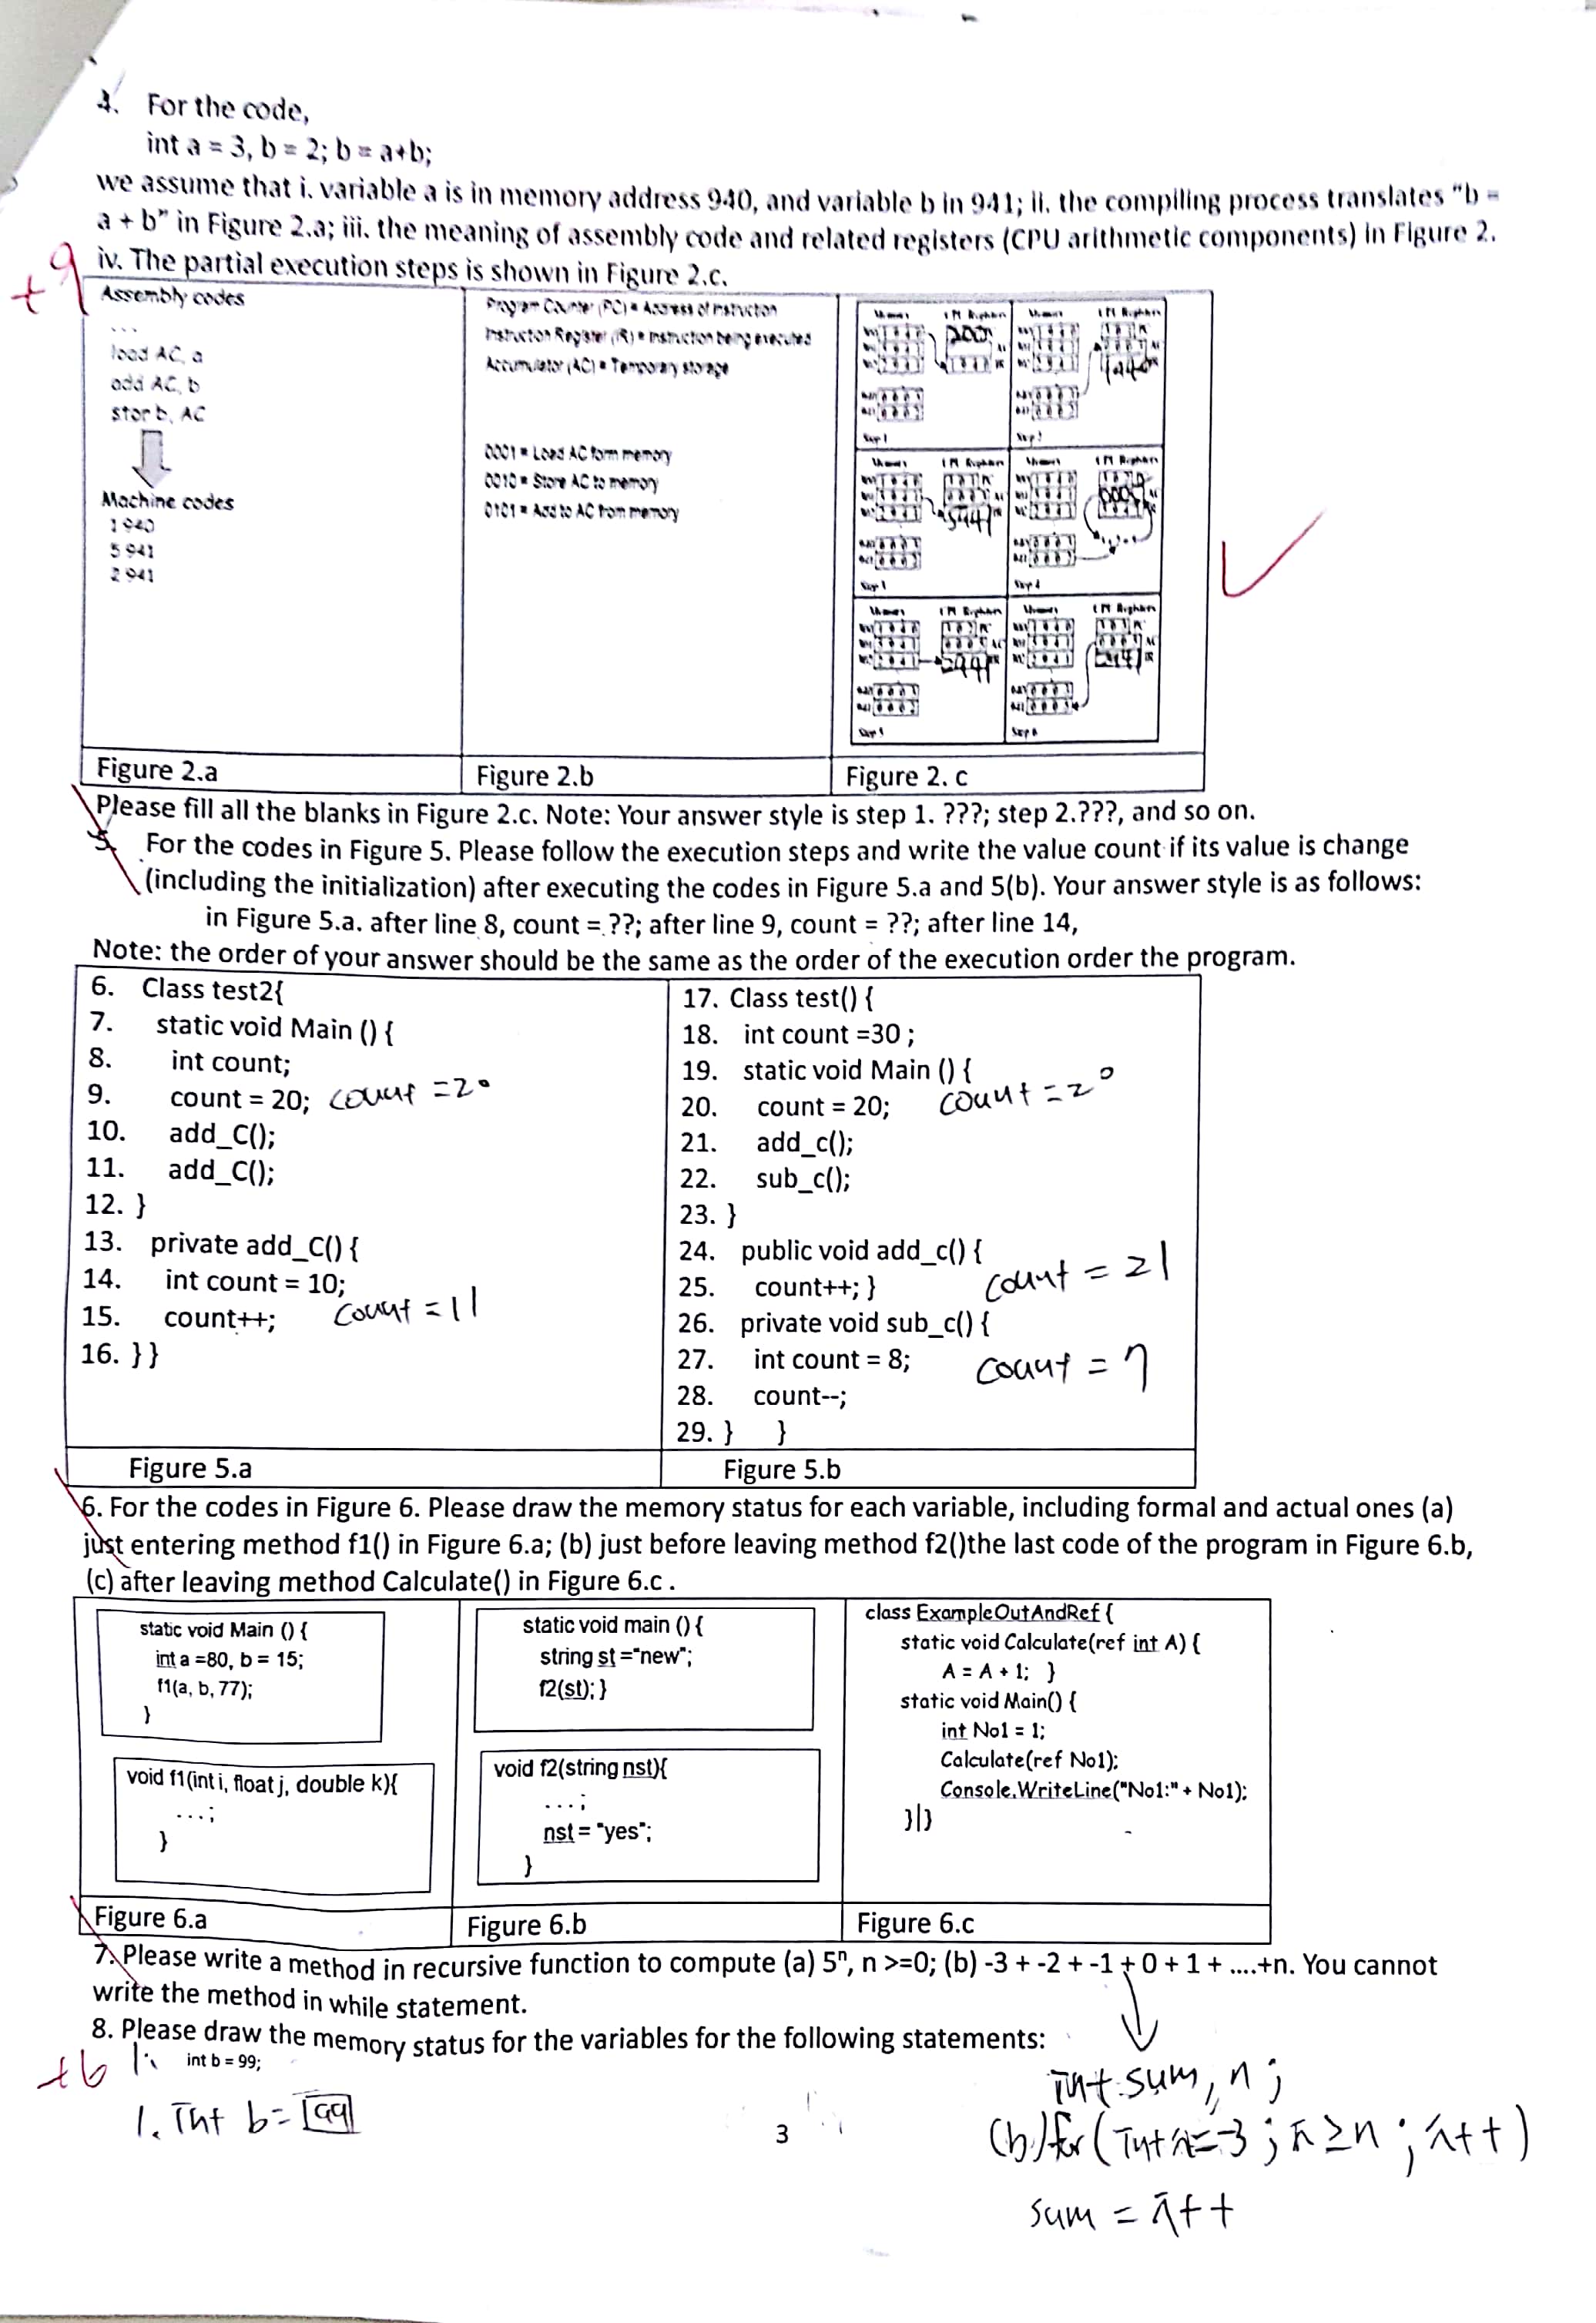 4. For the code,
int a = 3, b = 2; b = a+b;
we assume that i. variable a is in memory address 940, and variable b in 941; ii. the compiling process translates "b =
a + b" in Figure 2.a; iii. the meaning of assembly code and related registers (CPU arithmetic components) in Figure 2.
iv. The partial execution steps is shown in Figure 2.c.
+9
Assembly codes
...
load AC, a
add AC, b
stor b, AC
Machine codes
1 940
5 941
2 941
Program Counter (PC) = Address of instruction
Instruction Register (IR) = Instruction being executed
Accumulator (AC) = Temporary storage
0001 = Load AC form memory
0010 = Store AC to memory
0101 = Add to AC from memory
Memory CPU Registers Memory CPU Registers
1940
Step 1 Step 2
Memory CPU Registers Memory CPU Registers
5941
Step 3 Step 4
Memory CPU Registers Memory CPU Registers
2941 2941
Step 5 Step 6
Figure 2.a
Figure 2.b
Figure 2. c
Please fill all the blanks in Figure 2.c. Note: Your answer style is step 1. ???; step 2.???, and so on.
5. For the codes in Figure 5. Please follow the execution steps and write the value count if its value is change
(including the initialization) after executing the codes in Figure 5.a and 5(b). Your answer style is as follows:
in Figure 5.a. after line 8, count = ??; after line 9, count = ??; after line 14,
Note: the order of your answer should be the same as the order of the execution order the program.
6. Class test2{
7. static void Main () {
8. int count;
9. count = 20; count = 20
10. add_C();
11. add_C();
12. }
13. private add_C() {
14. int count = 10;
15. count++; count = 11
16. } }
17. Class test() {
18. int count =30 ;
19. static void Main () {
20. count = 20; count = 20
21. add_c();
22. sub_c();
23. }
24. public void add_c() {
25. count++; } count = 21
26. private void sub_c() {
27. int count = 8; count = 7
28. count--;
29. } }
Figure 5.a
Figure 5.b
6. For the codes in Figure 6. Please draw the memory status for each variable, including formal and actual ones (a)
just entering method f1() in Figure 6.a; (b) just before leaving method f2()the last code of the program in Figure 6.b,
(c) after leaving method Calculate() in Figure 6.c .
static void Main () {
int a =80, b = 15;
f1(a, b, 77);
}
void f1(int i, float j, double k){
...;
}
static void main () {
string st ="new";
f2(st); }
void f2(string nst){
...;
nst = "yes";
}
class ExampleOutAndRef {
static void Calculate(ref int A) {
A = A + 1; }
static void Main() {
int No1 = 1;
Calculate(ref No1);
Console.WriteLine("No1:" + No1);
}|}
Figure 6.a
Figure 6.b
Figure 6.c
7. Please write a method in recursive function to compute (a) 5ⁿ, n >=0; (b) -3 + -2 + -1 + 0 + 1 + ....+n. You cannot
write the method in while statement.
8. Please draw the memory status for the variables for the following statements:
+6
int b = 99;
1. Int b= 99
3
int sum, n ;
(b) for ( int i=-3 ; i ≥ n ; i++ )
sum = i++